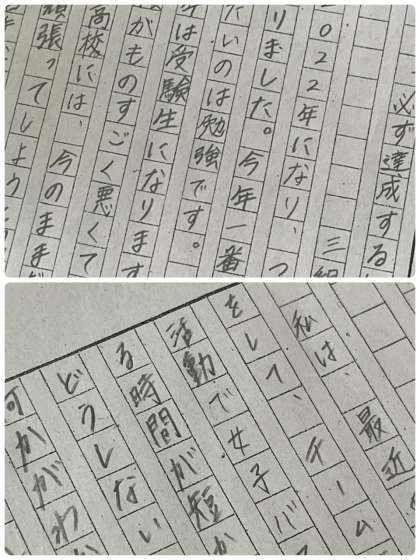 必ず達成する
三組
022年になり、つ
りました。今年一番
たいのは勉強です。
は受験生になります
がものすごく悪くて
高校には、今のまま
頑張ってしよう
私は、最近
をして、チーム
活動で女子バ
る時間が短か
どうしない
何かがわ